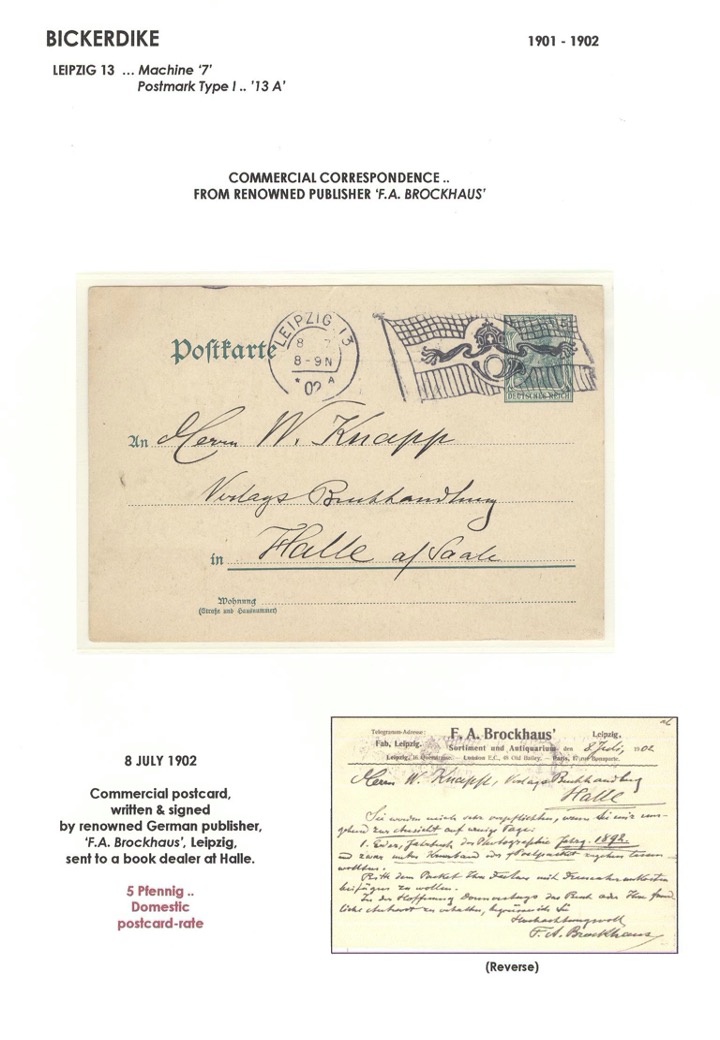 BICKERDIKE
1901 - 1902
LEIPZIG 13 … Machine ‘7’
Postmark Type I .. ‘13 A’
COMMERCIAL CORRESPONDENCE ..
FROM RENOWNED PUBLISHER ‘F.A. BROCKHAUS’
Postkarte
LEIPZIG 13
8
8-9N
* 02 A
DEUTSCHES REICH
An Herrn W. Knapp
Verlags Buchhandlung
in Halle a/Saale
Wohnung
(Straße und Hausnummer)
8 JULY 1902
Commercial postcard,
written & signed
by renowned German publisher,
‘F.A. Brockhaus’, Leipzig,
sent to a book dealer at Halle.
5 Pfennig ..
Domestic
postcard-rate
Telegramm-Adresse:
Fab, Leipzig.
F. A. Brockhaus'
Sortiment und Antiquarium
Leipzig.
den 8 Juli, 1902
Leipzig, 16 Querstrasse. — London E.C., 48 Old Bailey. — Paris, 17 rue Bonaparte.
Herrn W. Knapp, Verlags Buchhandlung
Halle
Sie würden mich sehr verpflichten, wenn Sie mir um-
gehend zur Ansicht auf wenige Tage:
1. Eder, Jahrbuch der Photographie Jahrg. 1892.
und zwar unter Kreuzband
wollten.
Bitte dem Packet
beifügen zu wollen.
In der Hoffnung
Hochachtungsvoll
F. A. Brockhaus
(Reverse)